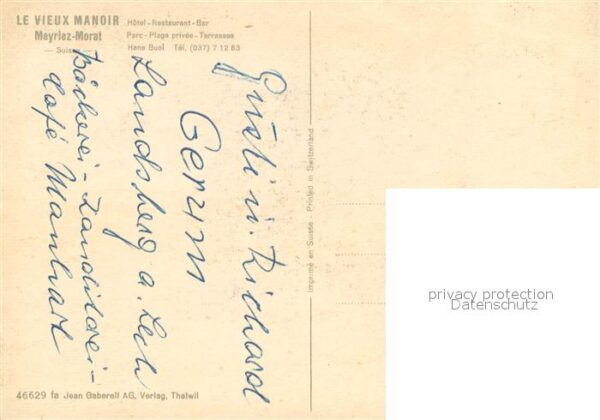 LE VIEUX MANOIR
Meyriez-Morat
— Suisse —
Hôtel-Restaurant-Bar
Parc-Plage privée-Terrasse
Hans Buol Tél. (037) 7 12 83
Gusti u. Richard
Gerum
Landsberg a. Lech
Bäckerei - Konditorei -
Café Manhart
Imprimé en Suisse - Printed in Switzerland
46629 fa Jean Gaberell AG, Verlag, Thalwil
privacy protection
Datenschutz